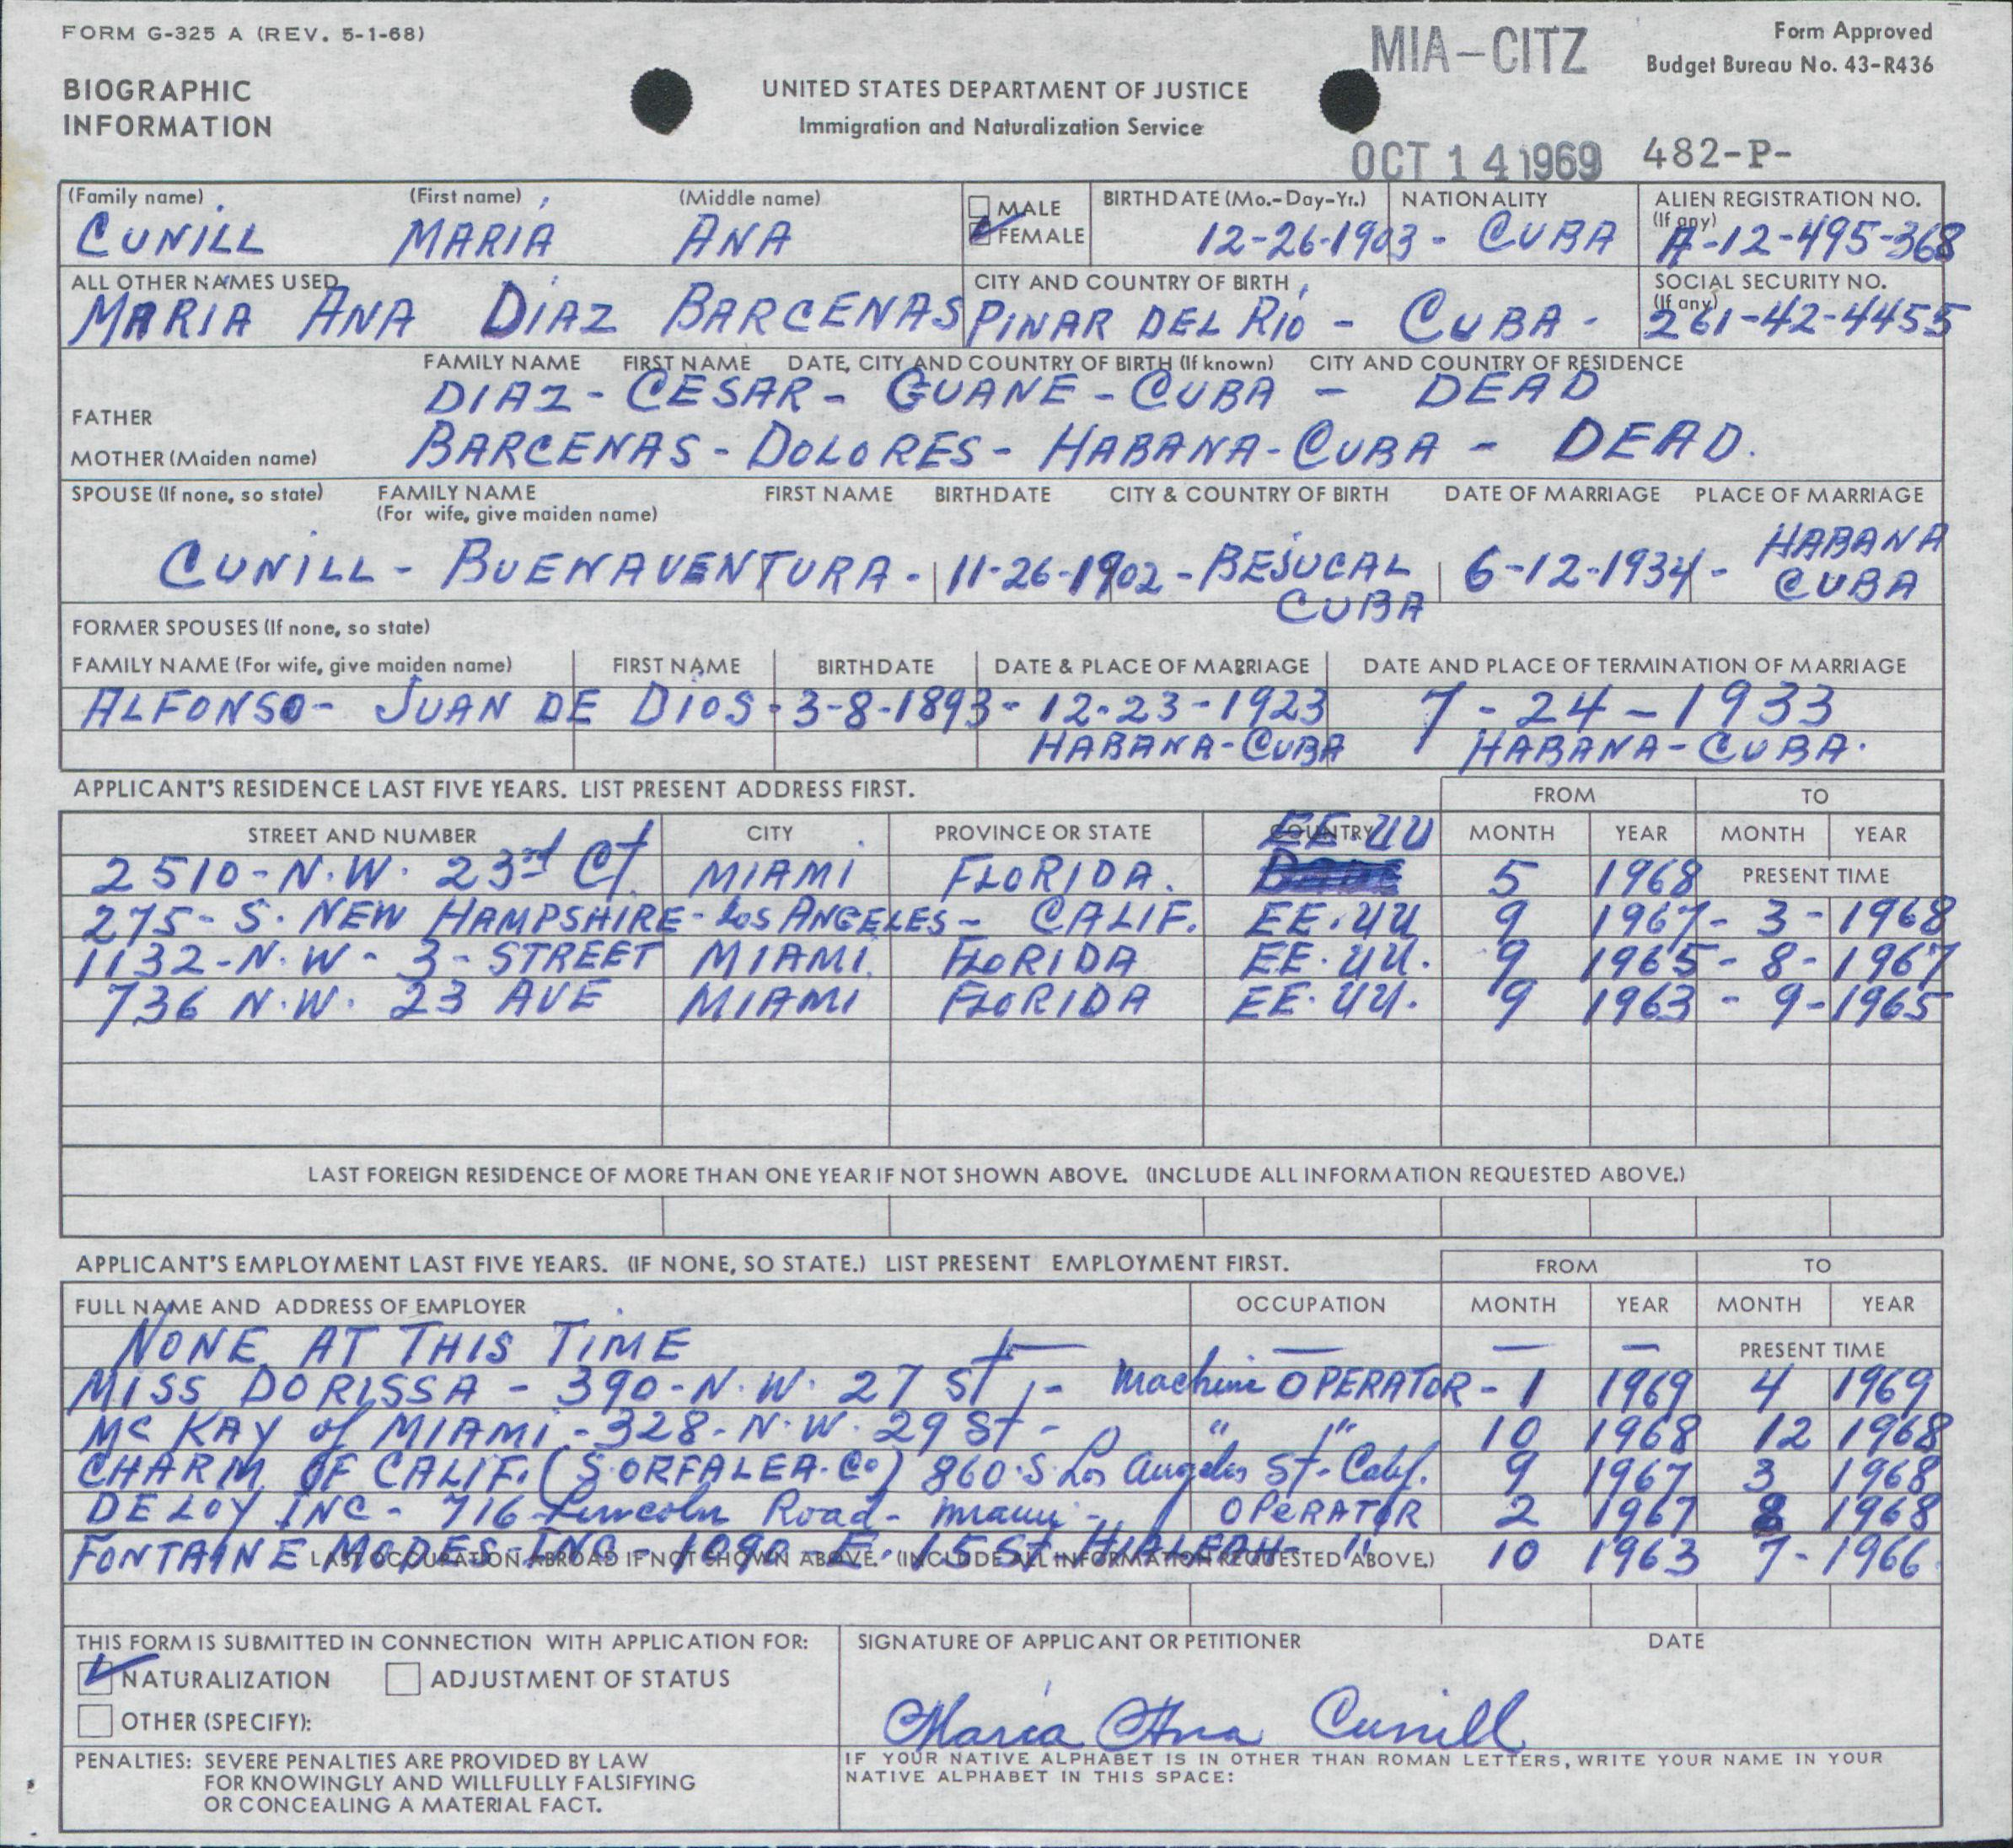 FORM G-325 A (REV. 5-1-68)
MIA-CITZ
Form Approved
Budget Bureau No. 43-R436
BIOGRAPHIC
INFORMATION
UNITED STATES DEPARTMENT OF JUSTICE
Immigration and Naturalization Service
OCT 14 1969 482-P-
(Family name) (First name) (Middle name)
CUNILL MARIA ANA
MALE
FEMALE
BIRTHDATE (Mo.-Day-Yr.) NATIONALITY
12-26-1903 - CUBA
ALIEN REGISTRATION NO.
(If any)
A-12-495-368
ALL OTHER NAMES USED
MARIA ANA DIAZ BARCENAS
CITY AND COUNTRY OF BIRTH
PINAR DEL RIO - CUBA -
SOCIAL SECURITY NO.
(If any)
261-42-4455
FAMILY NAME FIRST NAME DATE, CITY AND COUNTRY OF BIRTH (If known) CITY AND COUNTRY OF RESIDENCE
FATHER
DIAZ - CESAR - GUANE - CUBA - DEAD
MOTHER (Maiden name)
BARCENAS - DOLORES - HABANA - CUBA - DEAD.
SPOUSE (If none, so state) FAMILY NAME FIRST NAME BIRTHDATE CITY & COUNTRY OF BIRTH DATE OF MARRIAGE PLACE OF MARRIAGE
(For wife, give maiden name)
CUNILL - BUENAVENTURA - 11-26-1902 - BEJUCAL CUBA 6-12-1934 - HABANA CUBA
FORMER SPOUSES (If none, so state)
FAMILY NAME (For wife, give maiden name) FIRST NAME BIRTHDATE DATE & PLACE OF MARRIAGE DATE AND PLACE OF TERMINATION OF MARRIAGE
ALFONSO - JUAN DE DIOS - 3-8-1893 - 12-23-1923 7-24-1933
HABANA - CUBA HABANA - CUBA.
APPLICANT'S RESIDENCE LAST FIVE YEARS. LIST PRESENT ADDRESS FIRST.
FROM TO
STREET AND NUMBER CITY PROVINCE OR STATE COUNTRY MONTH YEAR MONTH YEAR
2510-N.W. 23rd Ct. MIAMI FLORIDA. EE UU 5 1968 PRESENT TIME
275-S. NEW HAMPSHIRE - Los ANGELES - CALIF. EE.UU 9 1967 - 3 - 1968
1132-N.W-3-STREET MIAMI. FLORIDA EE.UU. 9 1965 - 8 - 1967
736 N.W. 23 AVE MIAMI FLORIDA EE.UU. 9 1963 - 9 - 1965
LAST FOREIGN RESIDENCE OF MORE THAN ONE YEAR IF NOT SHOWN ABOVE. (INCLUDE ALL INFORMATION REQUESTED ABOVE.)
APPLICANT'S EMPLOYMENT LAST FIVE YEARS. (IF NONE, SO STATE.) LIST PRESENT EMPLOYMENT FIRST.
FROM TO
FULL NAME AND ADDRESS OF EMPLOYER OCCUPATION MONTH YEAR MONTH YEAR
NONE AT THIS TIME — — — — PRESENT TIME
MISS DORISSA - 390-N.W. 27 St, - Machine OPERATOR - 1 1969 4 1969
Mc KAY of MIAMI - 328-N.W. 29 St - " " 10 1968 12 1968
CHARM OF CALIF. (S.ORFALEA.Co) 860.S. Los Angeles St-Calif. 9 1967 3 1968
DELOY INC - 716 Lincoln Road - Miami - OPERATOR 2 1967 8 1968
FONTAINE MODES-INC - 1090-E. 15 St HIALEAH - " 10 1963 7 - 1966
LAST OCCUPATION ABROAD IF NOT SHOWN ABOVE. (INCLUDE ALL INFORMATION REQUESTED ABOVE.)
THIS FORM IS SUBMITTED IN CONNECTION WITH APPLICATION FOR:
NATURALIZATION ADJUSTMENT OF STATUS
OTHER (SPECIFY):
SIGNATURE OF APPLICANT OR PETITIONER DATE
Maria Ana Cunill
PENALTIES: SEVERE PENALTIES ARE PROVIDED BY LAW
FOR KNOWINGLY AND WILLFULLY FALSIFYING
OR CONCEALING A MATERIAL FACT.
IF YOUR NATIVE ALPHABET IS IN OTHER THAN ROMAN LETTERS, WRITE YOUR NAME IN YOUR
NATIVE ALPHABET IN THIS SPACE: